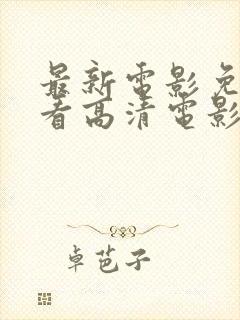 最新電影免
看高清電影
卓芭子